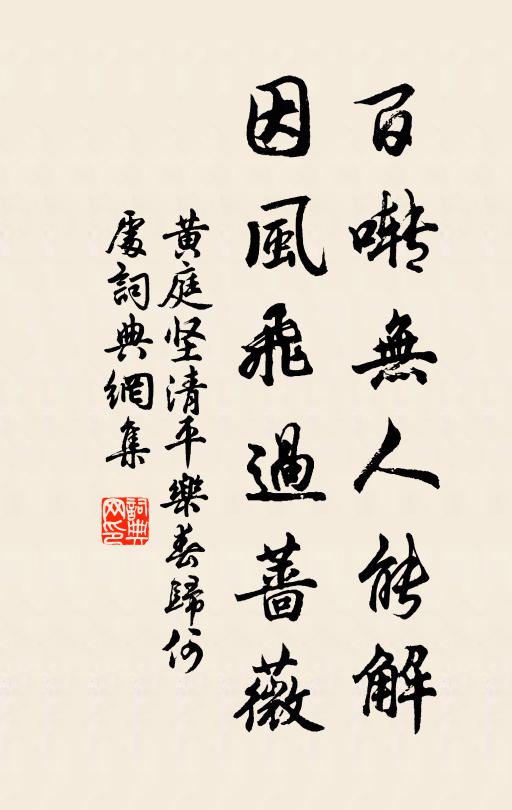 百囀無人能解
因風飛過薔薇
黄庭坚清平樂春歸何
處詞典網集
詞典网印